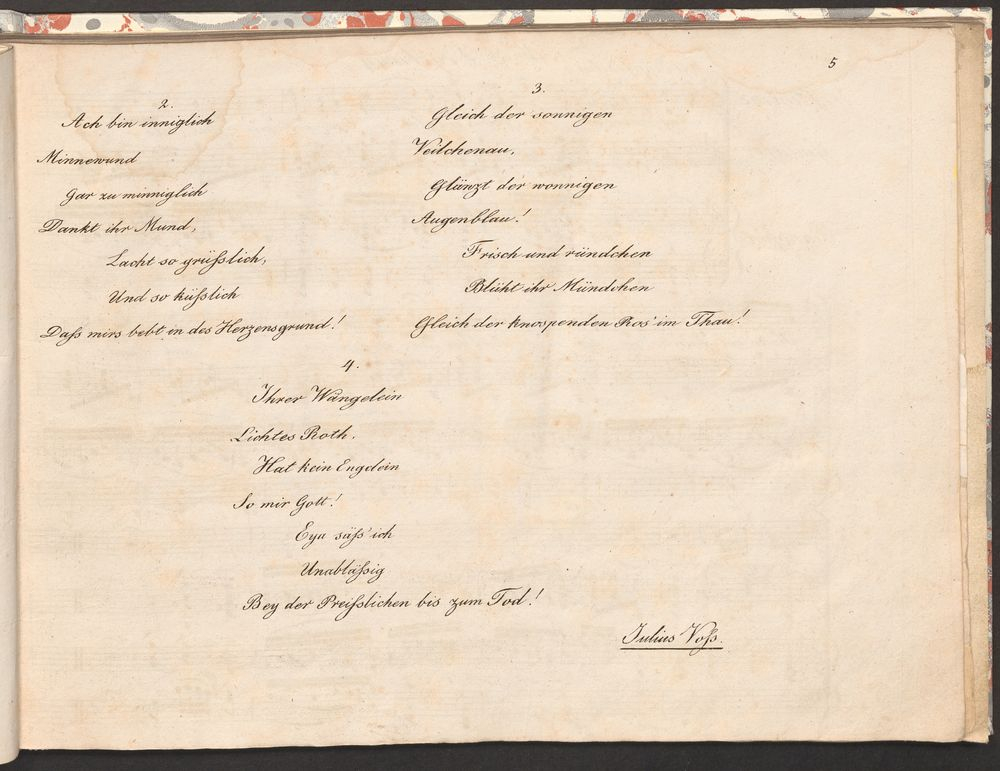 5
2.
Ach bin inniglich
Minnewund
Gar zu minniglich
Dankt ihr Mund,
Lacht so grüſslich,
Und so küſslich
Daſs mirs bebt in des Herzensgrund!
3.
Gleich der sonnigen
Veilchenau,
Glänzt der wonnigen
Augenblau!
Frisch und ründchen
Blüht ihr Mündchen
Gleich der knospenden Ros' im Thau!
4.
Ihrer Wängelein
Lichtes Roth,
Hat kein Engelein
So mir Gott!
Eya säſs' ich
Unabläſsig
Bey der Preiſslichen bis zum Tod!
Julius Voſs.